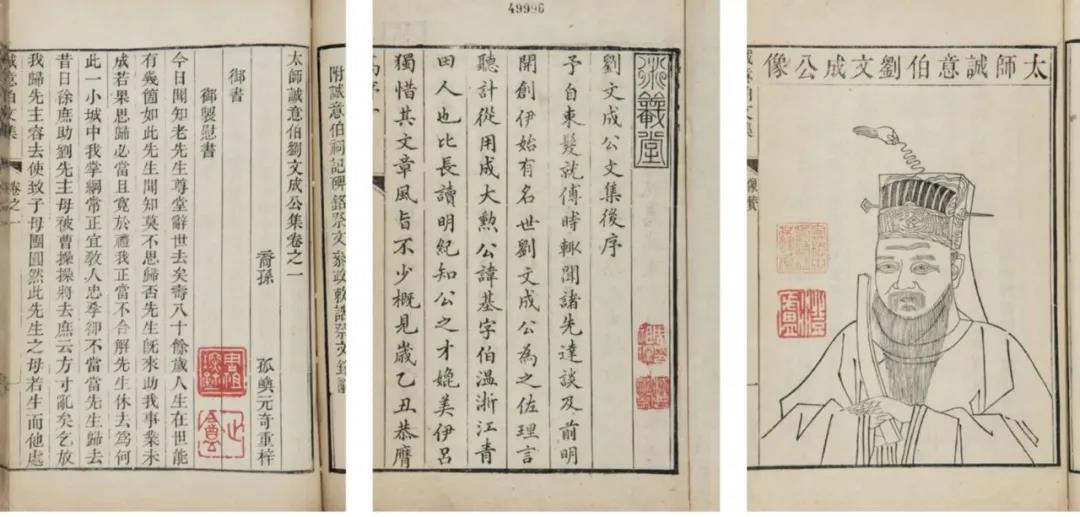 附誠意伯祠記碑銘祭文
太師誠意伯劉文成公集卷之一
裔孫 孤嶼元奇重梓
御書
御製慰書
今日聞知老先生尊堂辭世去矣壽八十餘歲人生在世能
有幾箇如此先生聞知莫不思歸否先生旣來助我事業未
成若果思歸必當且寬於禮我正當不合解先生休去爲何
此一小城中我掌綱常正宜敎人忠孝卻不當當先生歸去
昔日徐庶助劉先主母被曹操操將去庶云方寸亂矣乞放
我歸先主容去使致子母團圓然此先生之母若生而他處
誠意伯文集 卷之一
49996
劉文成公文集後序
予自束髮就傅時輒聞諸先達談及前明
開創伊始有名世劉文成公為之佐理言
聽計從用成大勲公諱基字伯温浙江青
田人也比長讀明紀知公之才媲美伊呂
獨惜其文章風旨不少概見歲乙丑恭膺
太師誠意伯劉文成公像
像贊